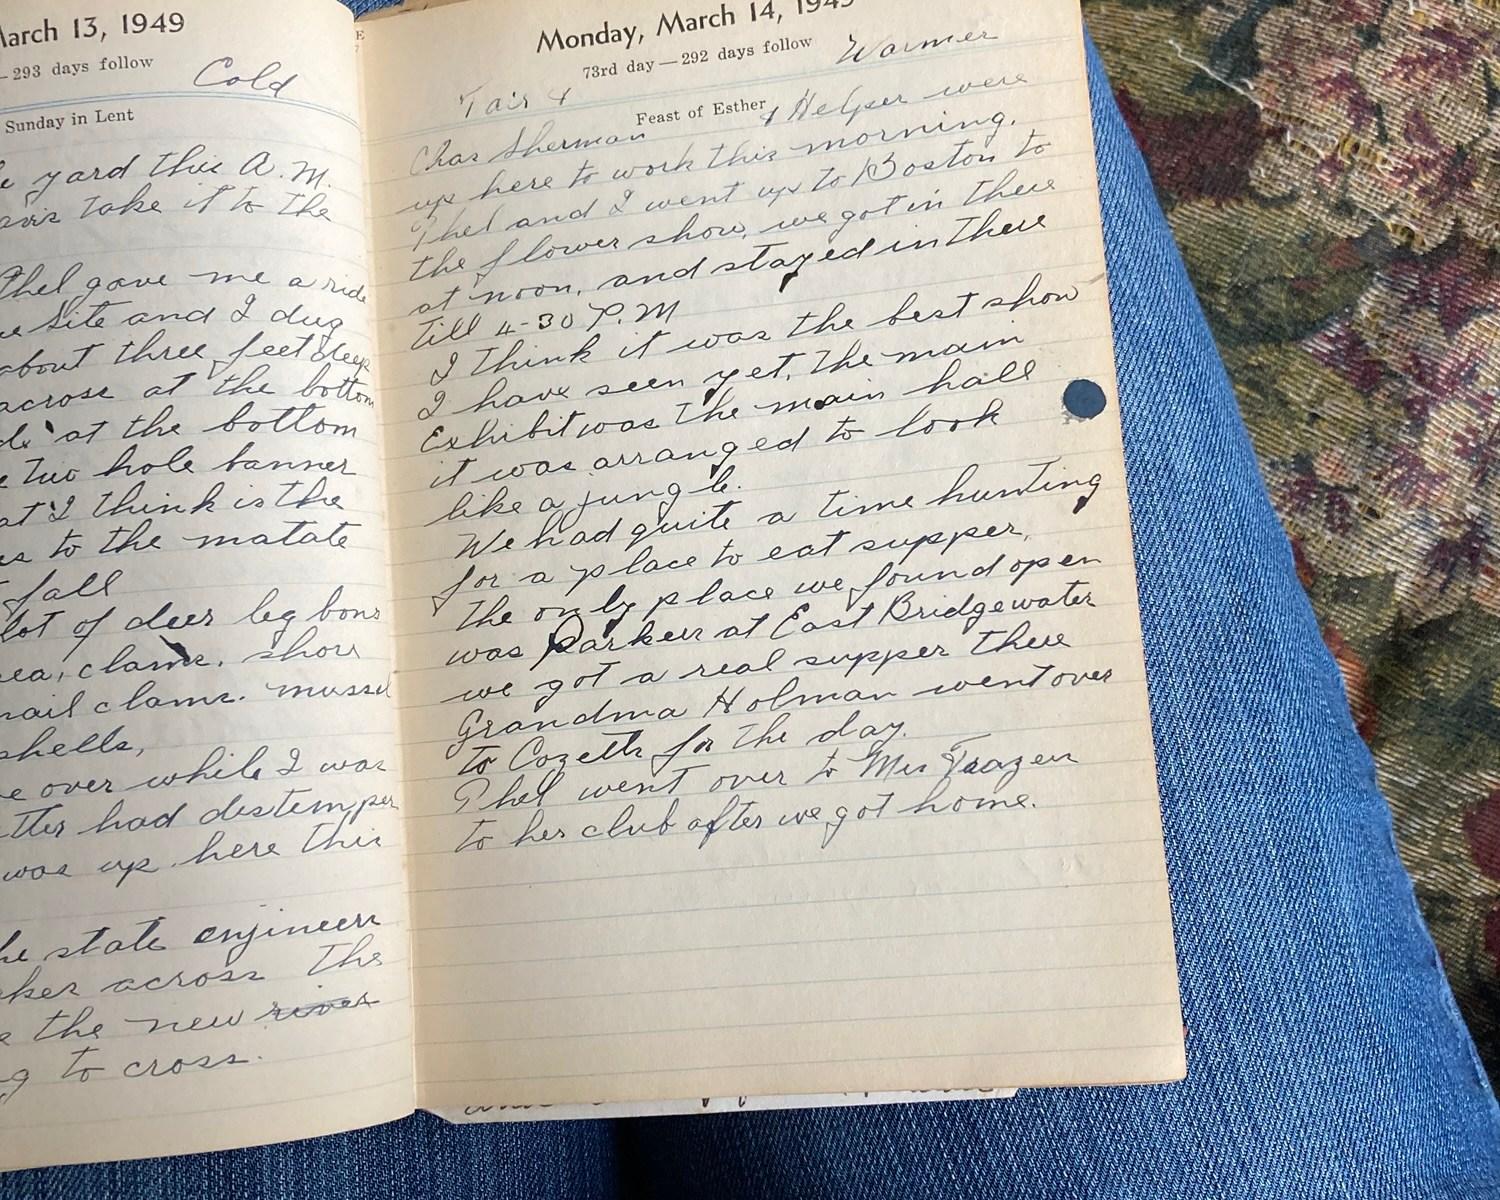 March 13, 1949
— 293 days follow
Cold
Sunday in Lent
yard this A. M.
take it to the
Phel gave me a ride
Site and I dug
about three feet deep
across at the bottom
at the bottom
two hole banner
I think is the
to the matate
fall
lot of deer leg bons
clams, shors
clams. mussel
shells,
over while I was
had distemper
was up here this
state engineers
across the
the new river
to cross.
Monday, March 14, 1949
73rd day — 292 days follow
Fair & Warmer
Feast of Esther
Chas Sherman & Helper were
up here to work this morning.
Phel and I went up to Boston to
the flower show, we got in there
at noon, and stayed in there
till 4-30 P.M
I think it was the best show
I have seen yet. the main
Exhibit was the main hall
it was arranged to look
like a jungle.
We had quite a time hunting
for a place to eat supper,
the only place we found open
was Parkers at East Bridgewater
we got a real supper there
Grandma Holman went over
to Cozetts for the day.
Phel went over to Mrs Frazers
to her club after we got home.